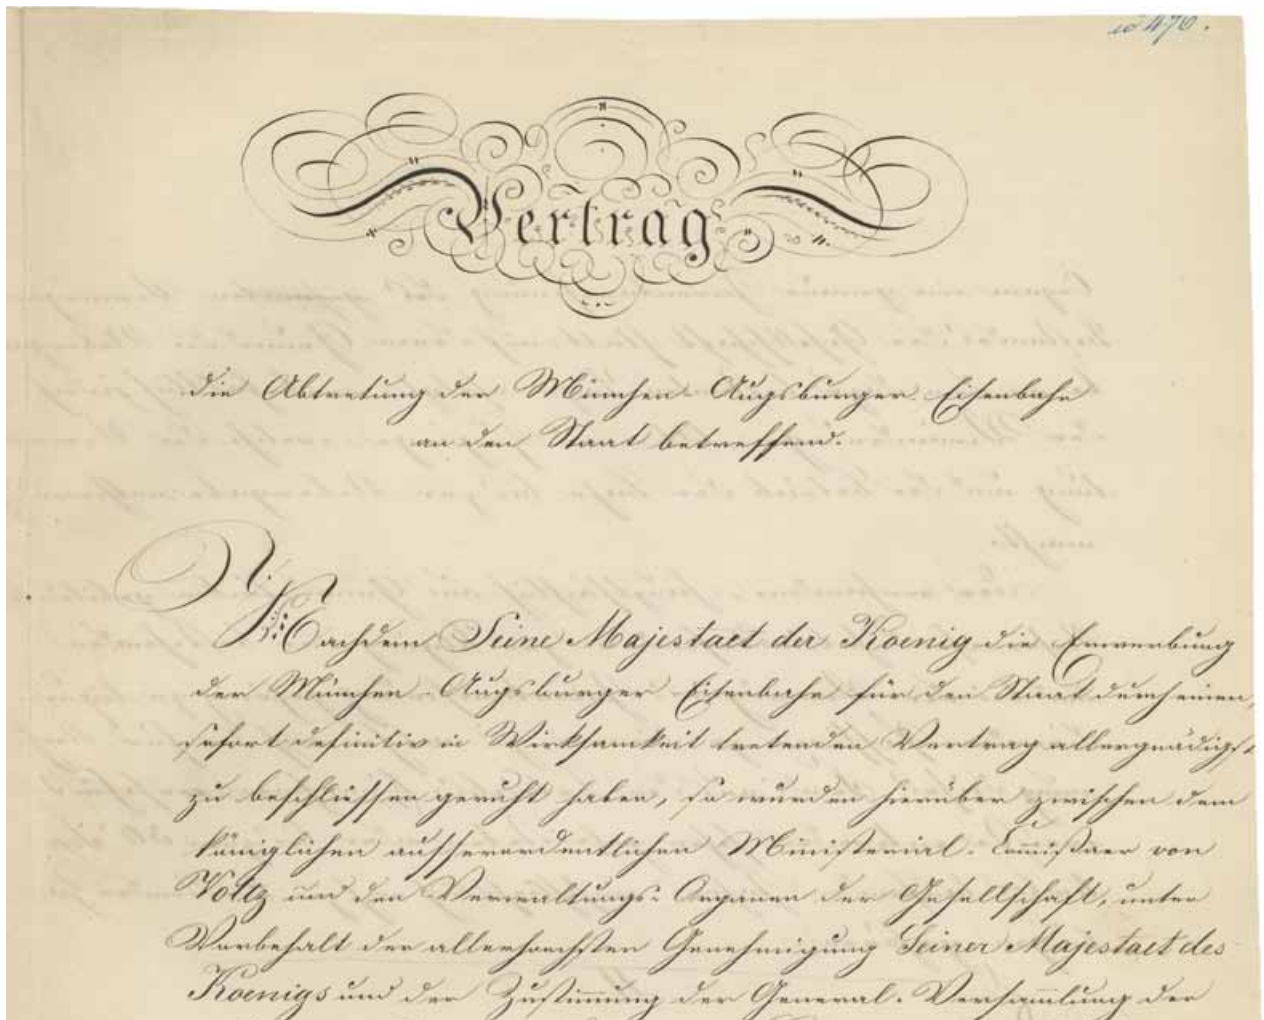 ad 470.
Vertrag
die Abtretung der München-Augsburger Eisenbahn
an den Staat betreffend.
Nachdem Seine Majestaet der Koenig die Erwerbung
der München-Augsburger Eisenbahn für den Staat durch einen,
sofort definitiv in Wirksamkeit tretenden Vertrag allergnädigst
zu beschliessen geruht haben, so wurden hierüber zwischen dem
königlichen ausserordentlichen Ministerial-Commißaer von
Voltz und den Verwaltungs-Organen der Gesellschaft, unter
Vorbehalt der allerhoechsten Genehmigung Seiner Majestaet des
Koenigs und der Zustimmung der General-Versammlung der